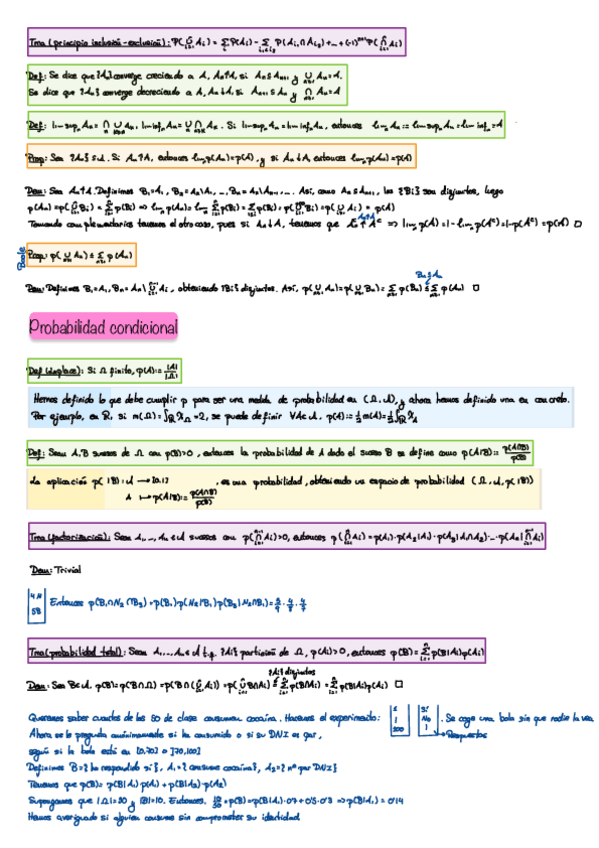 Tma (principio inclusión-exclusión): P(∪Ai) = Σ P(Ai) - Σ P(Ai₁∩Ai₂) + ... + (-1)ⁿ⁺¹ P(∩Ai)
Def: Se dice que {An} converge creciendo a A, An↑A, si An ⊆ An+1 y ∪An = A.
Se dice que {An} converge decreciendo a A, An↓A, si An+1 ⊆ An y ∩An = A
Def: limsup An = ∩∪An, liminf An = ∪∩An. Si limsup An = liminf An, entonces lim An := limsup An = liminf An = A
Prop: Sea {An} ⊆ 𝒜. Si An↑A, entonces lim p(An) = p(A), y si An↓A entonces lim p(An) = p(A)
Dem: Sea An↑A. Definimos B₁=A₁, B₂=A₂\A₁, ... Bn=An\An-1, ... Así, como An ⊆ An+1, los {Bi} son disjuntos, luego
p(An) = p(∪Bi) = Σ p(Bi) ⇒ lim p(An) = lim Σ p(Bi) = Σ p(Bi) = p(∪Bi) = p(∪Ai) = p(A)
Tomando complementarios tenemos el otro caso, pues si An↓A, tenemos que Anᶜ↑Aᶜ ⇒ lim p(An) = 1 - lim p(Anᶜ) = 1 - p(Aᶜ) = p(A) □
Boole
Prop: p(∪An) ≤ Σ p(An)
Bn ⊆ An
Dem: Definimos B₁=A₁, Bn=An\∪Ai, obteniendo {Bi} disjuntos. Así, p(∪An) = p(∪Bn) = Σ p(Bn) ≤ Σ p(An) □
Probabilidad condicional
Def (Laplace): Si Ω finito, p(A) := |A|/|Ω|
Hemos definido lo que debe cumplir p para ser una medida de probabilidad en (Ω, 𝒜), y ahora hemos definido una en concreto.
Por ejemplo, en ℝ, si m(Ω) = ∫ℝ χΩ = 2, se puede definir ∀A∈𝒜, p(A) := ½ m(A) = ½ ∫ℝ χA
Def: Sean A, B sucesos de Ω con p(B)>0, entonces la probabilidad de A dado el suceso B se define como p(A|B) := p(A∩B)/p(B)
La aplicación p( |B): 𝒜 → [0,1], es una probabilidad, obteniendo un espacio de probabilidad (Ω, 𝒜, p( |B))
A ↦ p(A|B) := p(A∩B)/p(B)
Tma (factorización): Sean A₁, ..., An ∈ 𝒜 sucesos con p(∩Ai)>0, entonces p(∩Ai) = p(A₁)·p(A₂|A₁)·p(A₃|A₁∩A₂)·...·p(An|∩Ai)
Dem: Trivial
4N
5B
Entonces p(B₁∩N₂∩B₃) = p(B₁)·p(N₂|B₁)·p(B₃|N₂∩B₁) = 5/9 · 4/8 · 4/7
Tma (probabilidad total): Sean A₁, ..., An ∈ 𝒜 t.q. {Ai} partición de Ω, p(Ai)>0, entonces p(B) = Σ p(B|Ai)p(Ai)
{Ai} disjuntos
Dem: Sea B∈𝒜. p(B) = p(B∩Ω) = p(B∩(∪Ai)) = p(∪B∩Ai) = Σ p(B∩Ai) = Σ p(B|Ai)p(Ai) □
Queremos saber cuántos de los 80 de clase consumen cocaína. Hacemos el experimento:
1
100
Sí
No
Se coge una bola sin que nadie la vea
Respuestas
Ahora se le pregunta anónimamente si ha consumido o si su DNI es par,
según si la bola está en [0,70] o ]70,100]
Definimos B={ha respondido sí}, A₁={consume cocaína}, A₂={nº par DNI}
Tenemos que p(B) = p(B|A₁)p(A₁) + p(B|A₂)·p(A₂)
Entonces, = p(B) = p(B|A₁)·0'7 + 0'5·0'3 ⇒ p(B|A₁) = 0'14
Hemos averiguado si alguien consume sin comprometer su identidad